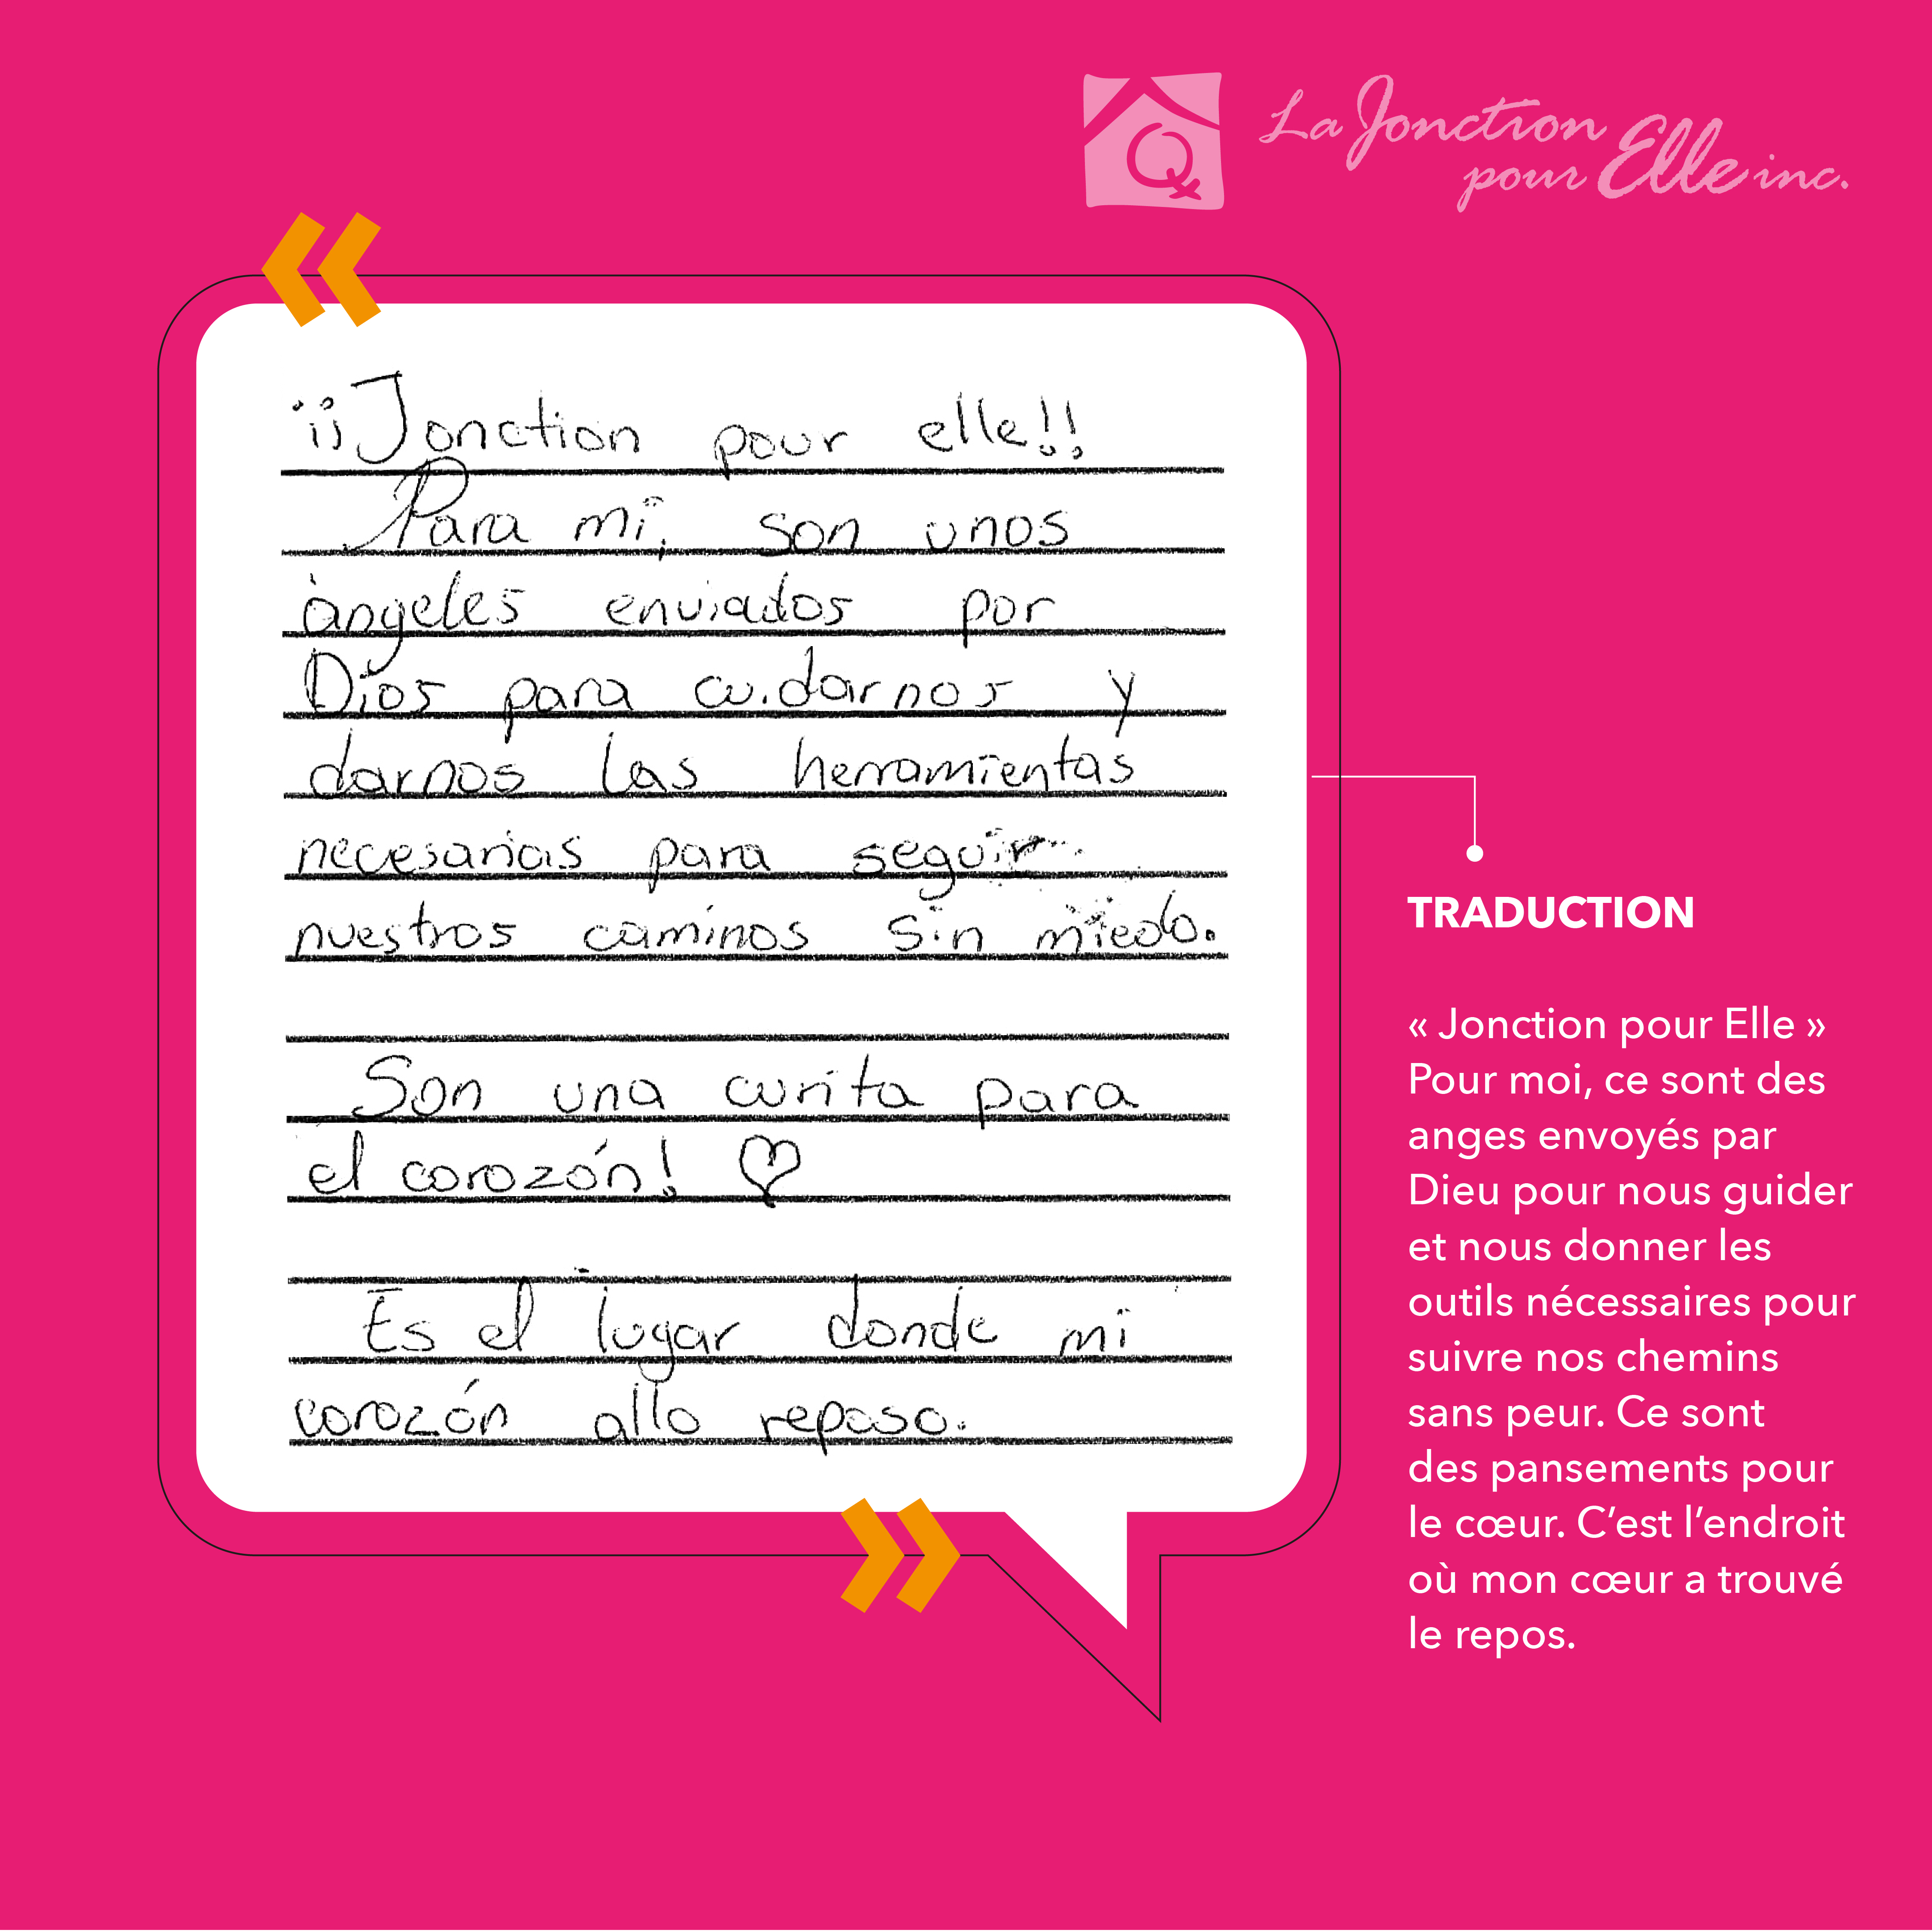 La Jonction
pour Elle inc.
¡¡Jonction pour elle!!
Para mi, son unos
ángeles enviados por
Dios para cuidarnos y
darnos las herramientas
necesarias para seguir
nuestros caminos sin miedo.
Son una curita para
el corazón! ♡
Es el lugar donde mi
corazón allo reposo.
TRADUCTION
« Jonction pour Elle »
Pour moi, ce sont des
anges envoyés par
Dieu pour nous guider
et nous donner les
outils nécessaires pour
suivre nos chemins
sans peur. Ce sont
des pansements pour
le cœur. C’est l’endroit
où mon cœur a trouvé
le repos.